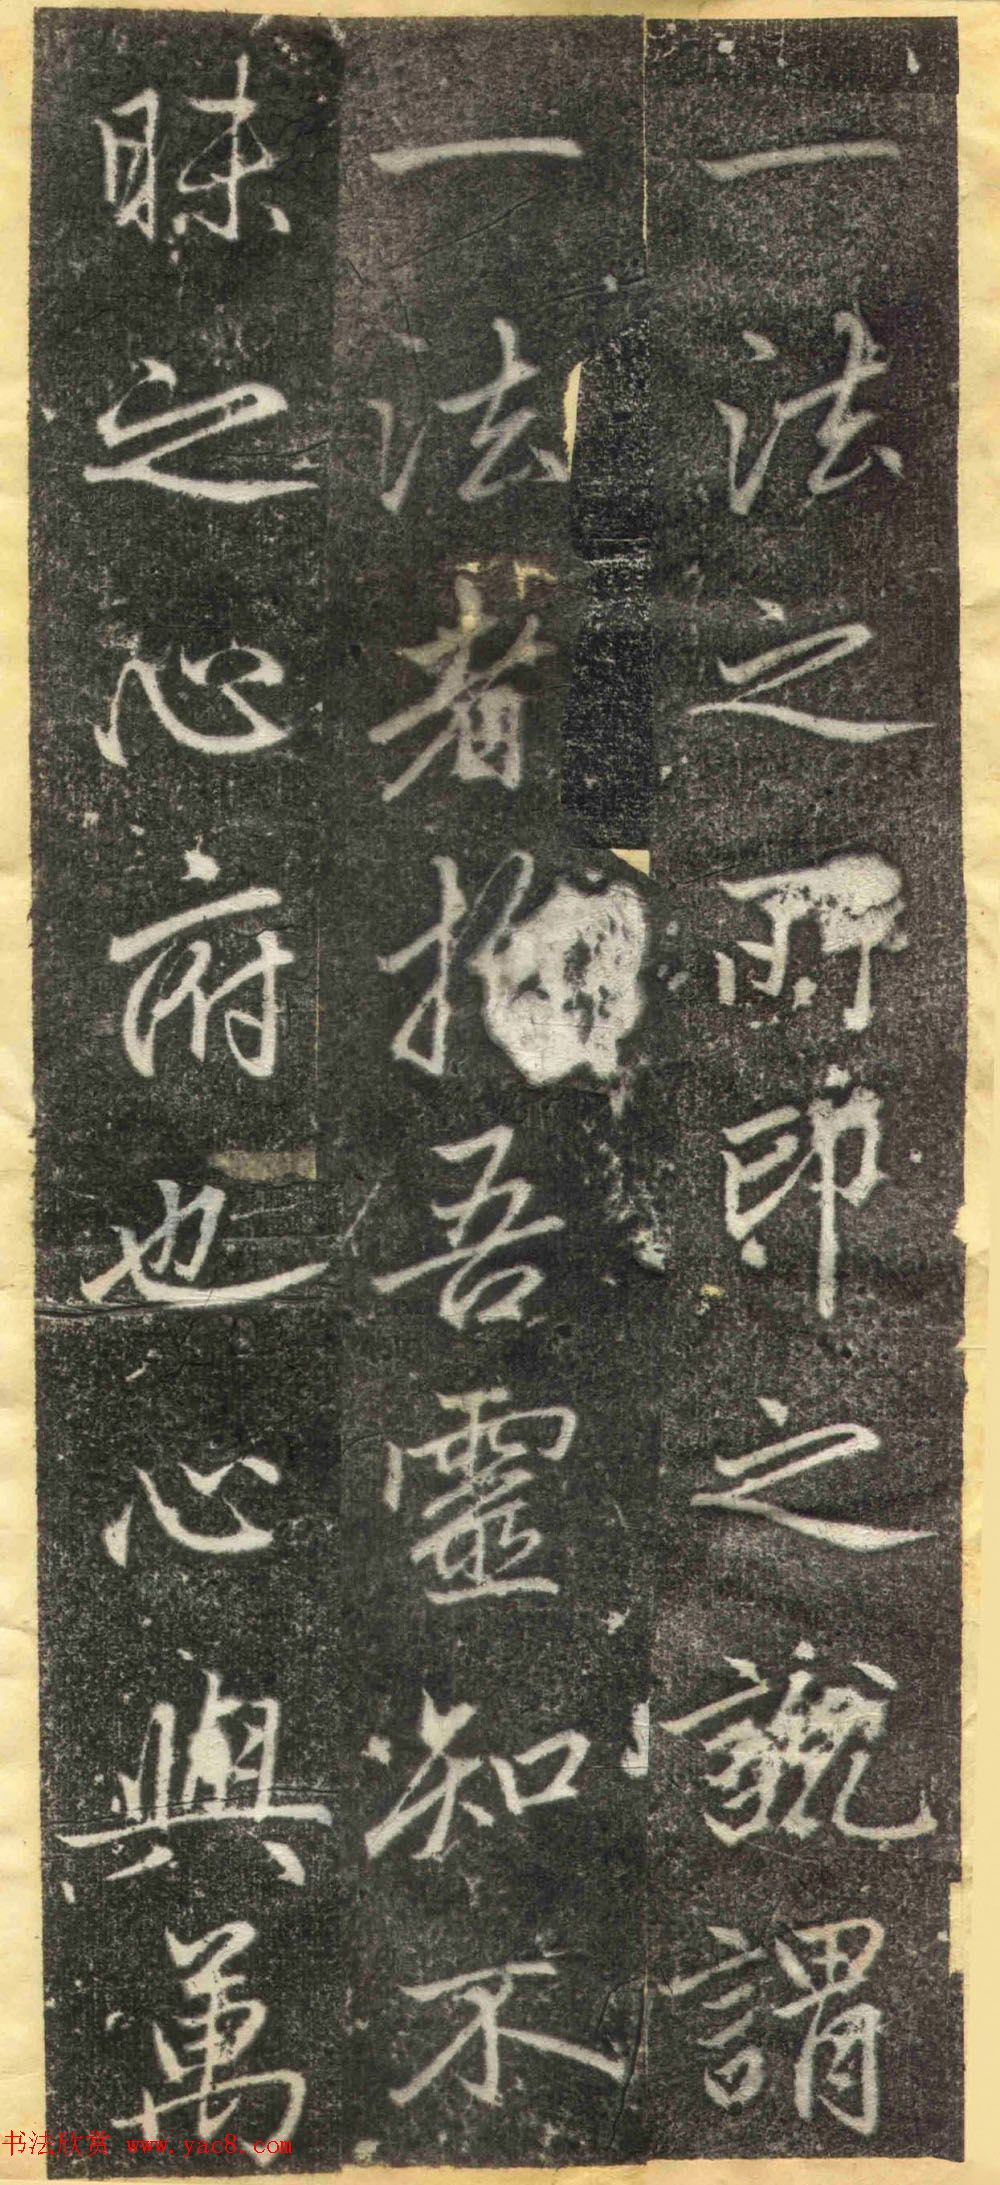 一法之所印之說謂
一法者吾靈知不
昧之心府也心與萬
书法欣赏 www.yac8.com